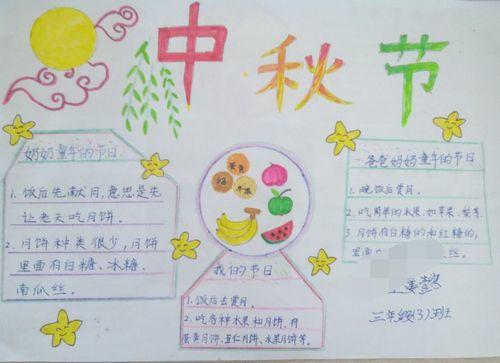 中秋节
奶奶童年的节日
1. 饭后先献月,意思是先
让老天吃月饼。
2. 月饼种类很少,月饼
里面有白糖、冰糖、
南瓜丝。
蛋黄
苹果
我的节日
1. 饭后去赏月。
2. 吃各种水果和月饼,有
蛋黄月饼、五仁月饼、水果月饼等。
爸爸妈妈童年的节日
1. 晚饭后赏月。
2. 吃简单的水果,如苹果、梨等.
3. 月饼有白糖的和红糖的,
里面
瓜丝。
三年级(3)班